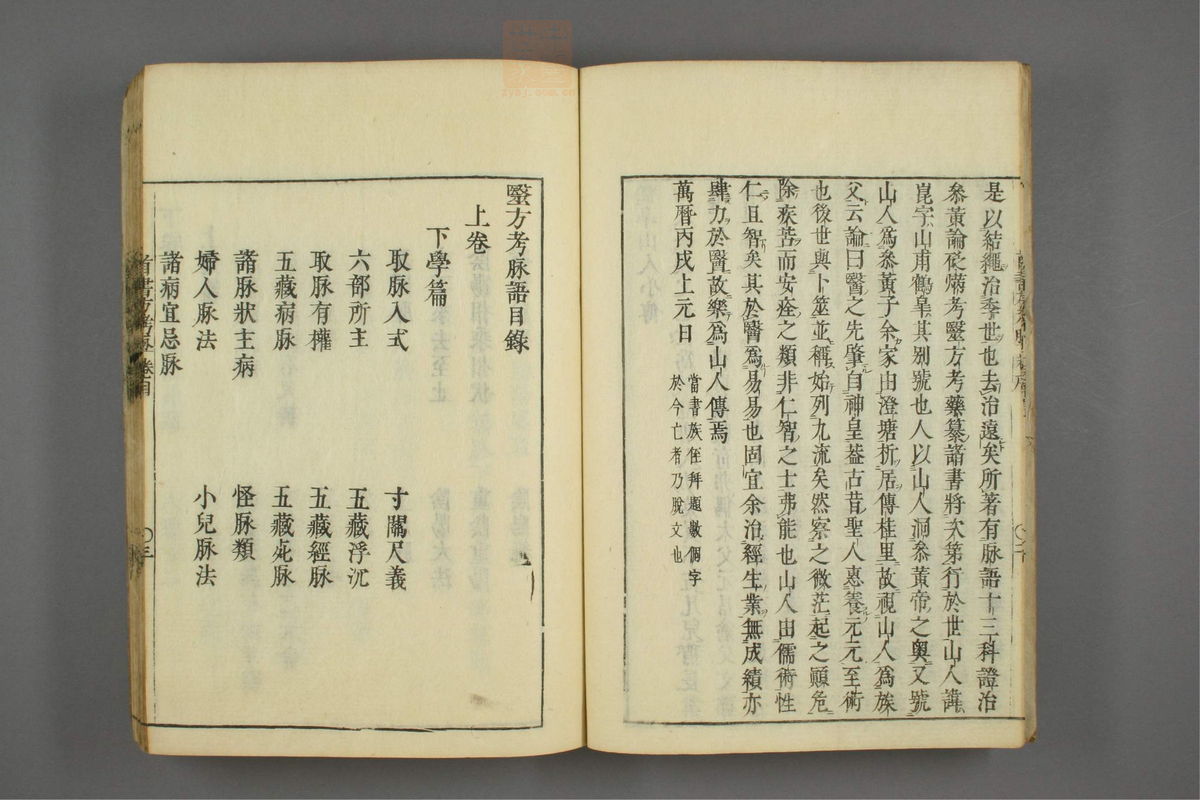 是以結繩治季世也去治遠矣所著有脉語十三科證治
叅黃論砭焫考毉方考藥纂諸書將次第行於世山人諱
崑字山甫鶴臯其别號也人以山人洞叅黃帝之奧又號
山人爲叅黃子余家由澄塘析居傳桂里故視山人爲族
父云論曰醫之先肇自神皇葢古昔聖人惠養元元至術
也後世與卜筮並稱始列九流矣然察之微茫起之顚危
除疾苦而安痊之類非仁智之士弗能也山人由儒術性
仁且智矣其於醫爲易易也固宜余治經生業無成績亦
肆力於醫故樂爲山人傳焉
萬曆丙戌上元日
當書族侄拜題數個字
於今亡者乃脫文也
毉方考脉語目錄
上卷
下學篇
取脉入式
寸關尺義
六部所主
五藏浮沉
取脉有權
五藏經脉
五藏病脉
五藏死脉
諸脉狀主病
怪脉類
婦人脉法
小兒脉法
諸病宜忌脉
〇三